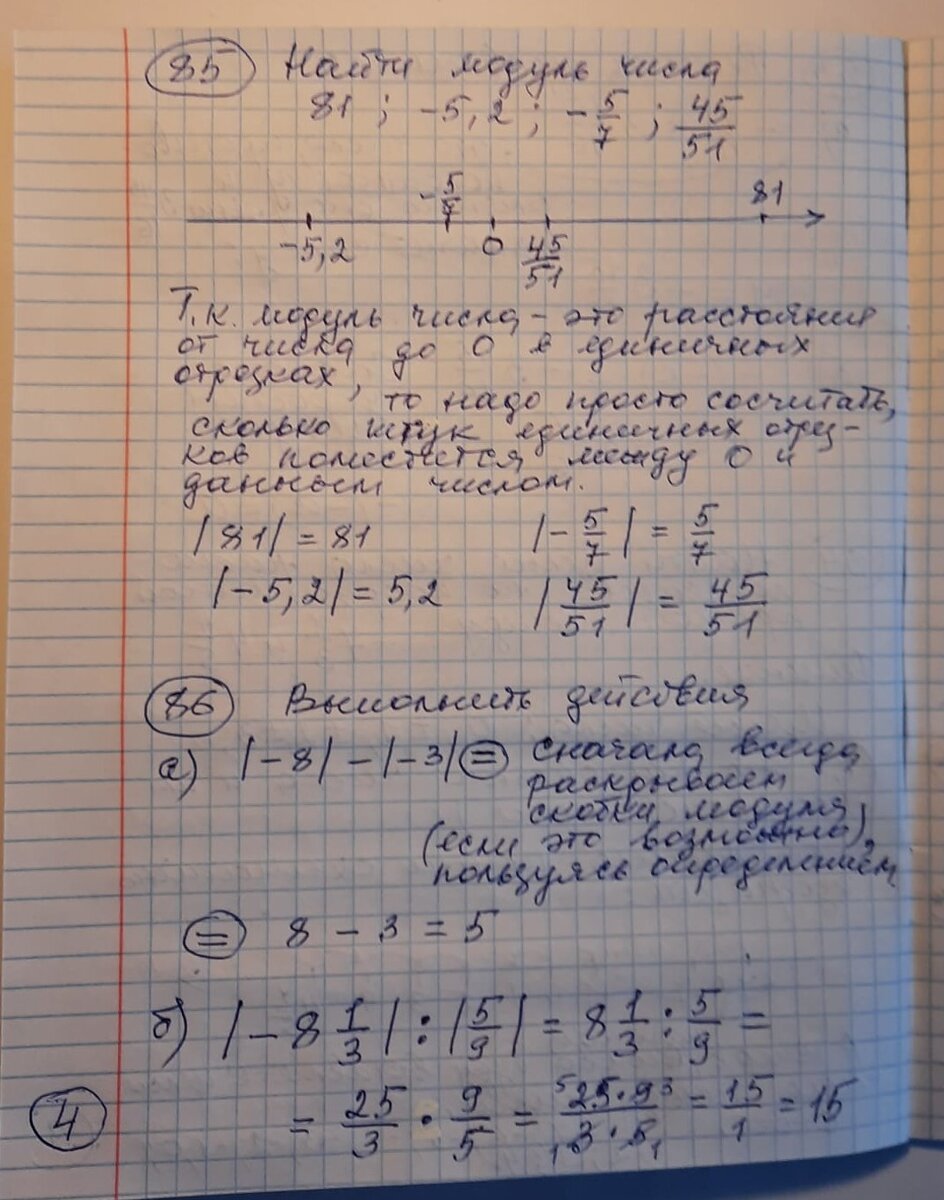 85 Найти модуль числа
81 ; -5,2 ; -5/7 ; 45/51
-5/7 81
-5,2 0 45/51
Т.к. модуль числа - это расстояние
от числа до 0 в единичных
отрезках,
то надо просто сосчитать,
сколько штук единичных отрез-
ков поместится между 0 и
данным числом.
|81| = 81 |-5/7| = 5/7
|-5,2| = 5,2 |45/51| = 45/51
86 Выполнить действия
а) |-8| - |-3| = сначала всегда
раскрываем
скобки модуля
(если это возможно),
пользуясь определением
= 8 - 3 = 5
б) |-8 1/3| : |5/9| = 8 1/3 : 5/9 =
4 = 25/3 · 9/5 = 5 25·9 3 / 1 3·5 1 = 15/1 = 15